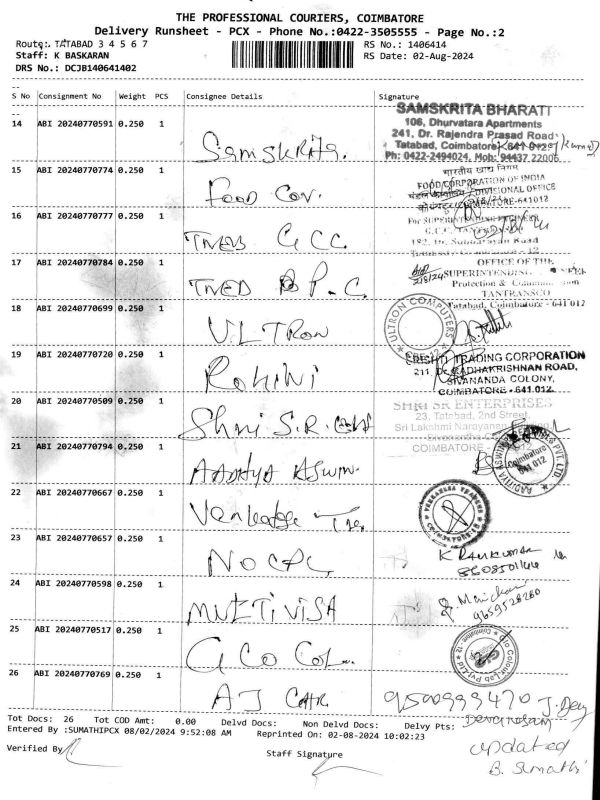 THE PROFESSIONAL COURIERS, COIMBATORE
Delivery Runsheet - PCX - Phone No.:0422-3505555 - Page No.:2
Route: TATABAD 3 4 5 6 7
RS No.: 1406414
Staff: K BASKARAN
RS Date: 02-Aug-2024
DRS No.: DCJB140641402
S No Consignment No Weight PCS Consignee Details Signature
14 ABI 20240770591 0.250 1 Samskrita.
SAMSKRITA BHARATI
106, Dhurvatara Apartments
241, Dr. Rajendra Prasad Road
Tatabad, Coimbatore - 641 012
Ph: 0422-2494024, Mob: 94437 22006
15 ABI 20240770774 0.250 1 Food Cor.
भारतीय खाद्य निगम
FOOD CORPORATION OF INDIA
DIVISIONAL OFFICE
COIMBATORE-641012
16 ABI 20240770777 0.250 1 TNEB GCC
For SUPERINTENDING ENGINEER
17 ABI 20240770784 0.250 1 TNEB P.C
OFFICE OF THE
SUPERINTENDING
Protection &
TANTRANSCO
Tatabad, Coimbatore - 641 012
2/8/24
18 ABI 20240770699 0.250 1 ULTRON
ULTRON COMPUTERS
19 ABI 20240770720 0.250 1 Rohini
TRADING CORPORATION
211, Dr. RADHAKRISHNAN ROAD,
SIVANANDA COLONY,
COIMBATORE - 641 012.
20 ABI 20240770509 0.250 1 Shri S.R.
SHRI SR ENTERPRISES
23, Tatabad, 2nd Street,
Sri Lakshmi Narayana
COIMBATORE
21 ABI 20240770794 0.250 1 AADHYA ASWIN.
Coimbatore
641 012
22 ABI 20240770667 0.250 1
COIMBATORE
23 ABI 20240770657 0.250 1 NOCPL
K Ramkumar
24 ABI 20240770598 0.250 1 MULTI VISA
9659528280
25 ABI 20240770517 0.250 1 Co Col
Colour Lab Pvt Ltd
26 ABI 20240770769 0.250 1 AJ
9500999470 J. Dev
Tot Docs: 26 Tot COD Amt: 0.00 Delvd Docs: Non Delvd Docs: Delvy Pts:
Entered By :SUMATHIPCX 08/02/2024 9:52:08 AM Reprinted On: 02-08-2024 10:02:23
Verified By
Staff Signature
updated
B. Sumathi